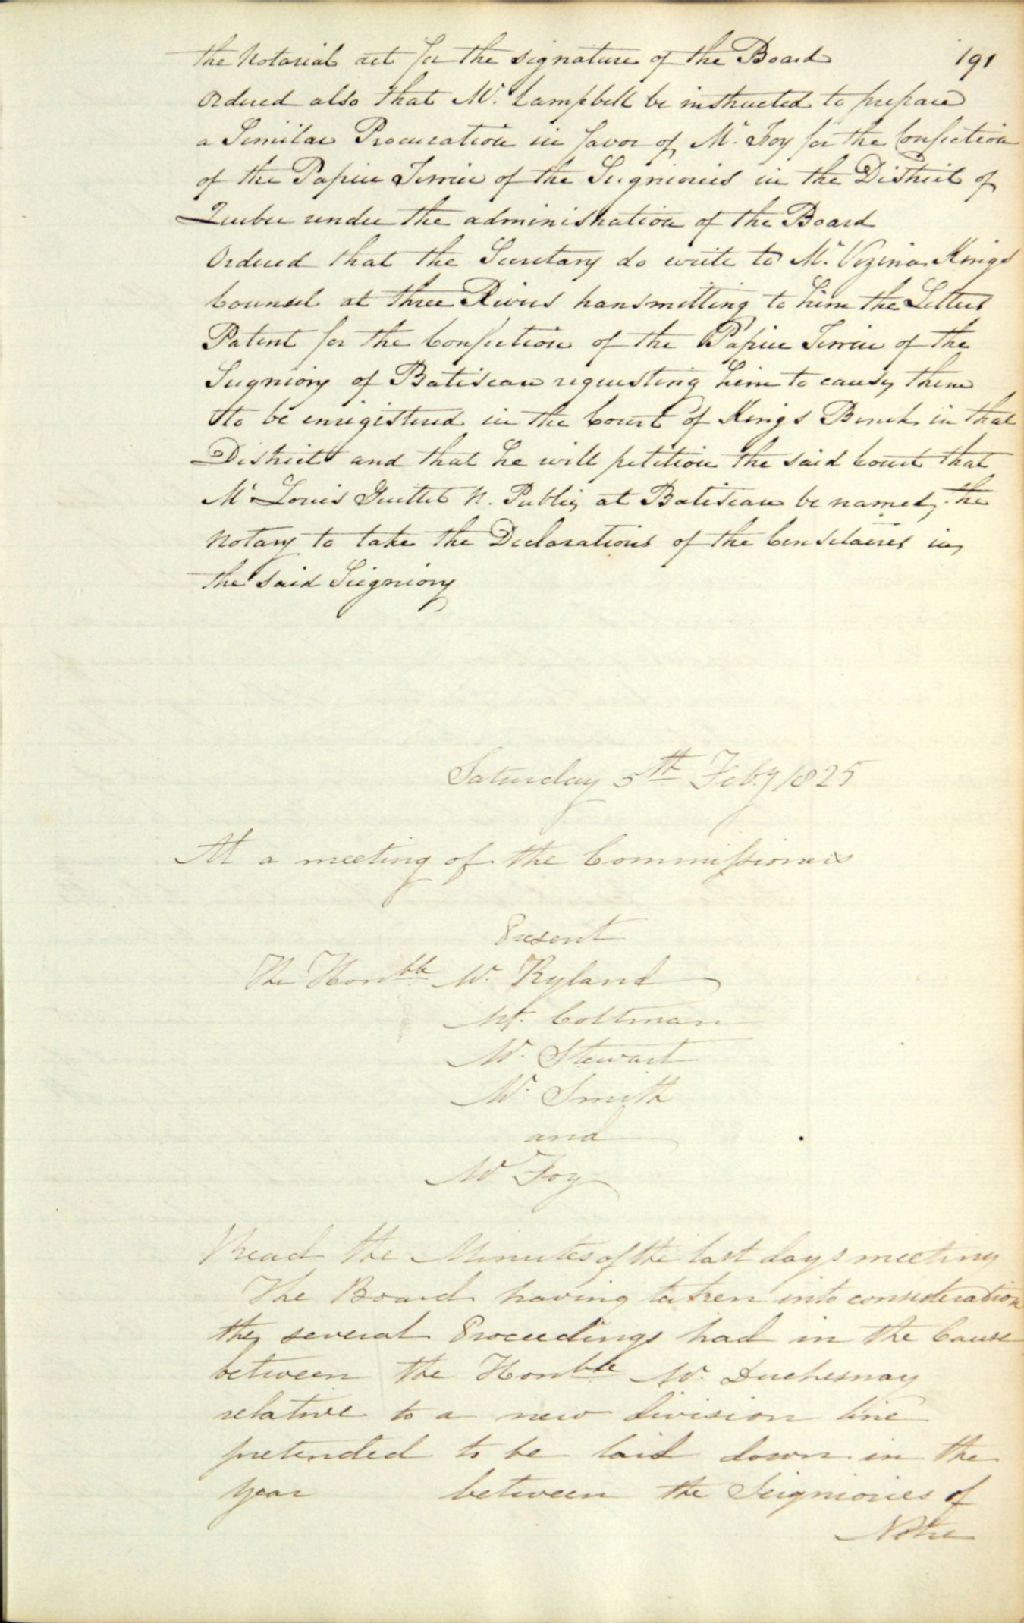 the Notarial act for the signature of the Board 191
Ordered also that Mr. Campbell be instructed to prepare
a Similar Procuration in favor of Mr. Foy for the Confection
of the Papier Terrier of the Seigniories in the District of
Quebec under the administration of the Board
Ordered that the Secretary do write to Mr. Vezina Kings
Counsel at three Rivers transmitting to him the Letters
Patent for the Confection of the Papier Terrier of the
Seigniory of Batiscan requesting him to cause them
to be enregistered in the Court of Kings Bench in that
District and that he will petition the said Court that
Mr. Louis Guillet N. Public at Batiscan be named the
Notary to take the Declarations of the Censitaires in
the said Seigniory
Saturday 5th Feby 1825
At a meeting of the Commissioners
Present
The Honble Mr. Ryland
Mr. Coltman
Mr. Stewart
Mr. Smith
and
Mr Foy
Read the Minutes of the last days meeting
The Board having taken into consideration
the several Proceedings had in the Cause
between the Honble Mr. Duchesnay
relative to a new division line
pretended to be laid down in the
year between the Seigniories of
Notre